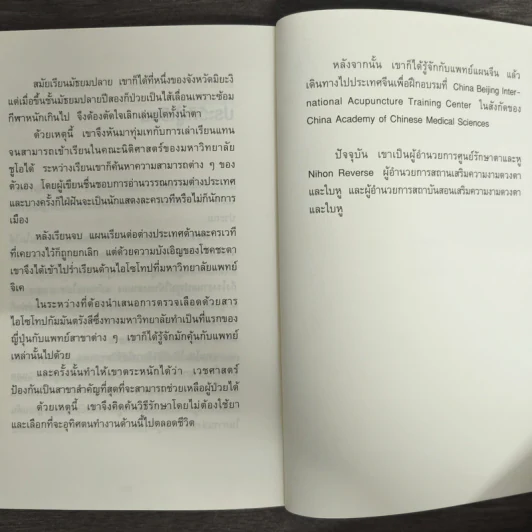 สมัยเรียนมัธยมปลาย เขาก็ได้ที่หนึ่งของจังหวัดมิยะงิ
แต่เมื่อขึ้นชั้นมัธยมปลายปีสองก็ป่วยเป็นไส้เลื่อนเพราะซ้อม
กีฬาหนักเกินไป จึงต้องตัดใจเลิกเล่นยูโดทั้งน้ำตา
ด้วยเหตุนี้ เขาจึงหันมาทุ่มเทกับการเล่าเรียนแทน
จนสามารถเข้าเรียนในคณะนิติศาสตร์ของมหาวิทยาลัย
ชูโอได้ ระหว่างเรียนเขาก็ค้นหาความสามารถต่าง ๆ ของ
ตัวเอง โดยผู้เขียนชื่นชอบการอ่านวรรณกรรมต่างประเทศ
และบางครั้งก็ใฝ่ฝันจะเป็นนักแสดงละครเวทีหรือไม่ก็นักการ
เมือง
หลังเรียนจบ แผนเรียนต่อต่างประเทศด้านละครเวที
ที่เคยวางไว้ก็ถูกยกเลิก แต่ด้วยความบังเอิญของโชคชะตา
เขาจึงได้เข้าไปร่ำเรียนด้านไอโซโทปที่มหาวิทยาลัยแพทย์
จิเค
ในระหว่างที่ต้องนำเสนอการตรวจเลือดด้วยสาร
ไอโซโทปกัมมันตรังสีซึ่งทางมหาวิทยาลัยทำเป็นที่แรกของ
ญี่ปุ่นกับแพทย์สาขาต่าง ๆ เขาก็ได้รู้จักมักคุ้นกับแพทย์
เหล่านั้นไปด้วย
และครั้งนั้นทำให้เขาตระหนักได้ว่า เวชศาสตร์
ป้องกันเป็นสาขาสำคัญที่สุดที่จะสามารถช่วยเหลือผู้ป่วยได้
ด้วยเหตุนี้ เขาจึงคิดค้นวิธีรักษาโดยไม่ต้องใช้ยา
และเลือกที่จะอุทิศตนทำงานด้านนี้ไปตลอดชีวิต
หลังจากนั้น เขาก็ได้รู้จักกับแพทย์แผนจีน แล้ว
เดินทางไปประเทศจีนเพื่อฝึกอบรมที่ China Beijing Inter-
national Acupuncture Training Center ในสังกัดของ
China Academy of Chinese Medical Sciences
ปัจจุบัน เขาเป็นผู้อำนวยการศูนย์รักษาตาและหู
Nihon Reverse ผู้อำนวยการสถานเสริมความงามดวงตา
และใบหู และผู้อำนวยการสถาบันสอนเสริมความงามดวงตา
และใบหู